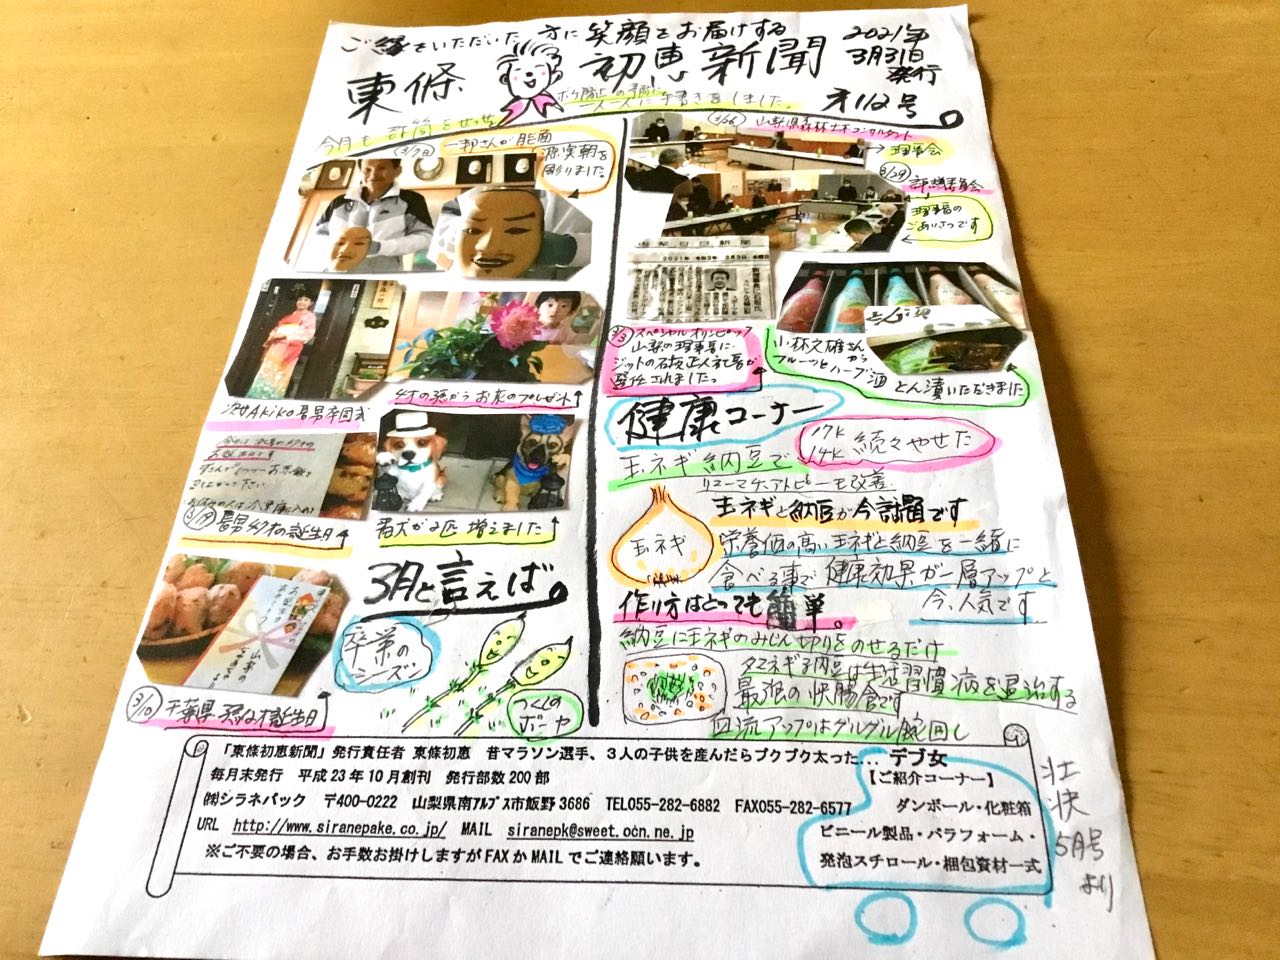 ご縁をいただいた方に笑顔をお届けする
東條 初恵新聞
2021年
3月31日
発行
才112号
一人一人に手書きをしました。
3/7日 一郎さんが能面
源実朝を
彫りました。
次女Akiko長男卒園式
4才の孫からお花のプレゼント
長男の誕生日
看犬が2匹増えました
3月と言えば。
卒業の
シーズン
つくしの
ボーヤ
3/10 千葉県
誕生日
3/26 山梨県森林土木コンサルタント
理事会
3/29 評議委員会
理事長の
ごあいさつです
山梨日日新聞
3/3 スペシャルオリンピックス
山梨の理事長に
ジットの石坂正人社長が
就任されました。
小林文雄さん
から
フルーツとハーブ酒 とん漬いただきました
健康コーナー
17K
14K 続々やせた
玉ネギ納豆で
リューマチ、アトピーも改善
玉ネギと納豆が今話題です
玉ネギ
栄養価の高い玉ネギと納豆を一緒に
食べる事で健康効果が一層アップと
今、人気です
作り方はとっても簡単。
納豆に玉ネギのみじん切りをのせるだけ
タマネギ納豆は生活習慣病を退治する
最強の快腸食です
血流アップはグルグル腕回し
「東條初恵新聞」発行責任者 東條初恵 昔マラソン選手、3人の子供を産んだらブクブク太った... デブ女
毎月末発行 平成23年10月創刊 発行部数200部
【ご紹介コーナー】
㈱シラネパック 〒400-0222 山梨県南ｱﾙﾌﾟｽ市飯野3686 TEL055-282-6882 FAX055-282-6577
ダンボール・化粧箱
URL http://www.siranepake.co.jp/ MAIL siranepk@sweet.ocn.ne.jp
ビニール製品・パラフォーム・
※ご不要の場合、お手数お掛けしますがFAXかMAILでご連絡願います。
発泡スチロール・梱包資材一式
壮
快
5月号
より